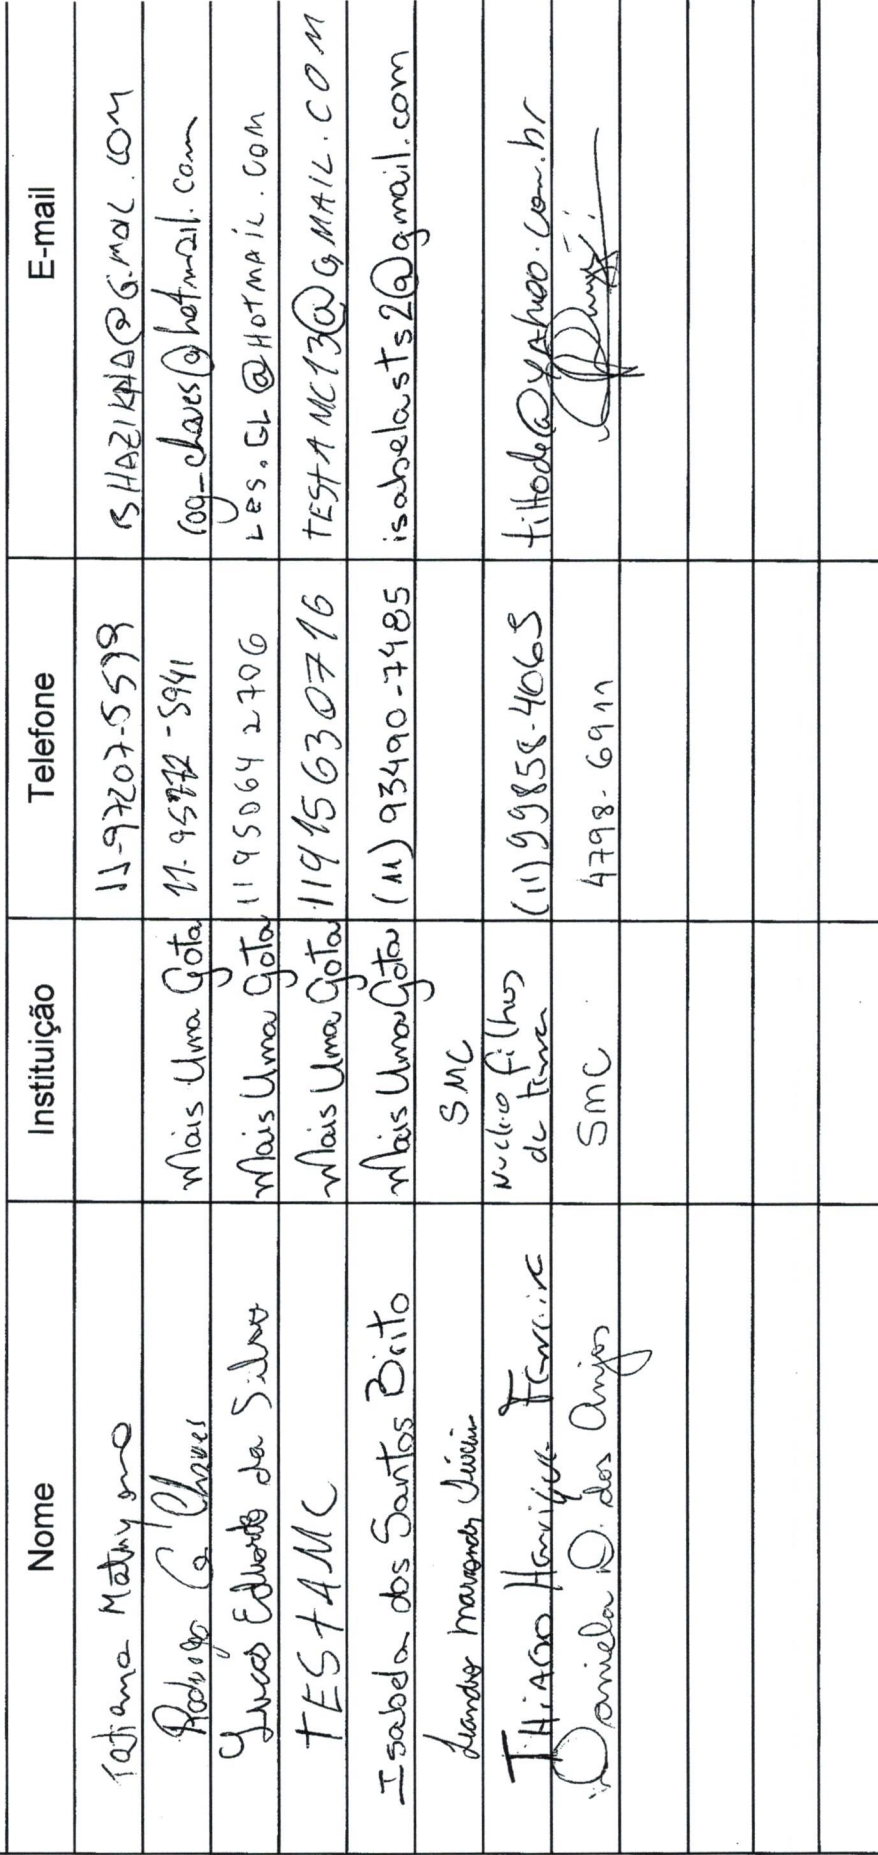 Nome Instituição Telefone E-mail
Tatiana 11-97207-5599
Rodrigo G Chaves Mais Uma Gota 11-95772-5941 rog_chaves@hotmail.com
Lucas Eduardo da Silva Mais Uma Gota 11950642706 LES.GL@HOTMAIL.COM
TESTAMC Mais Uma Gota 11915630716 TESTAMC13@GMAIL.COM
Isabela dos Santos Brito Mais Uma Gota (11) 93490-7485 isabelasts2@gmail.com
SMC
THIAGO Henrique Ferreira Nucleo filhos (11)99858-4065
de terra
Daniela D. dos Anjos SMC 4798-6911